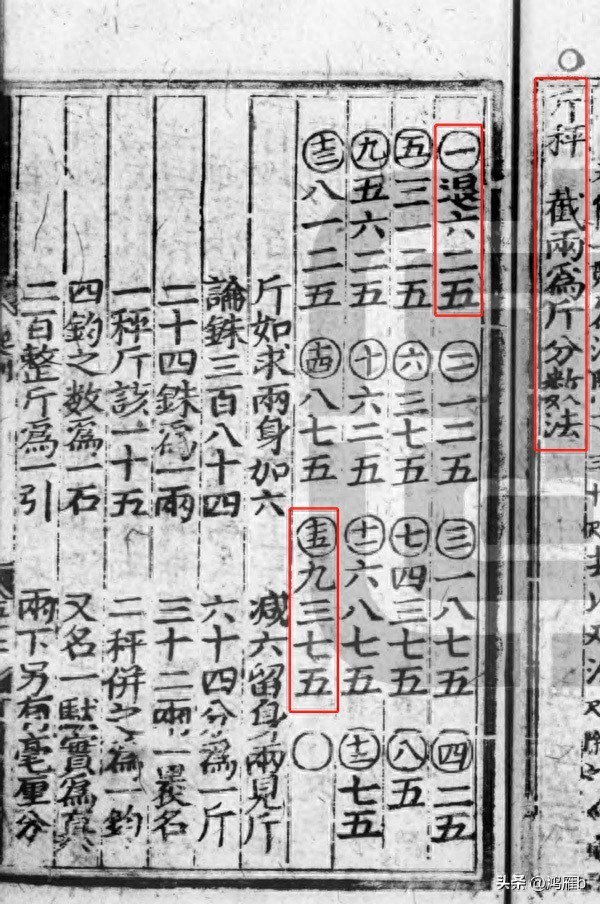 斤秤 截兩爲斤分數法
一退六二五 二一二五 三一八七五 四二五
五三一二五 六三七五 七四三七五 八五
九五六二五 十六二五 十一六八七五 十二七五
十三八一二五 十四八七五 十五九三七五 〇
斤如求兩身加六 減六留身兩見斤
論銖三百八十四 六十四分爲一斤
二十四銖爲一兩 三十二兩一裹名
一秤斤該一十五 二秤併之爲一鈞
四鈞之數爲一石 又名一馱實爲真
二百整斤爲一引 兩下另有毫厘分
头条 @鸿雁b